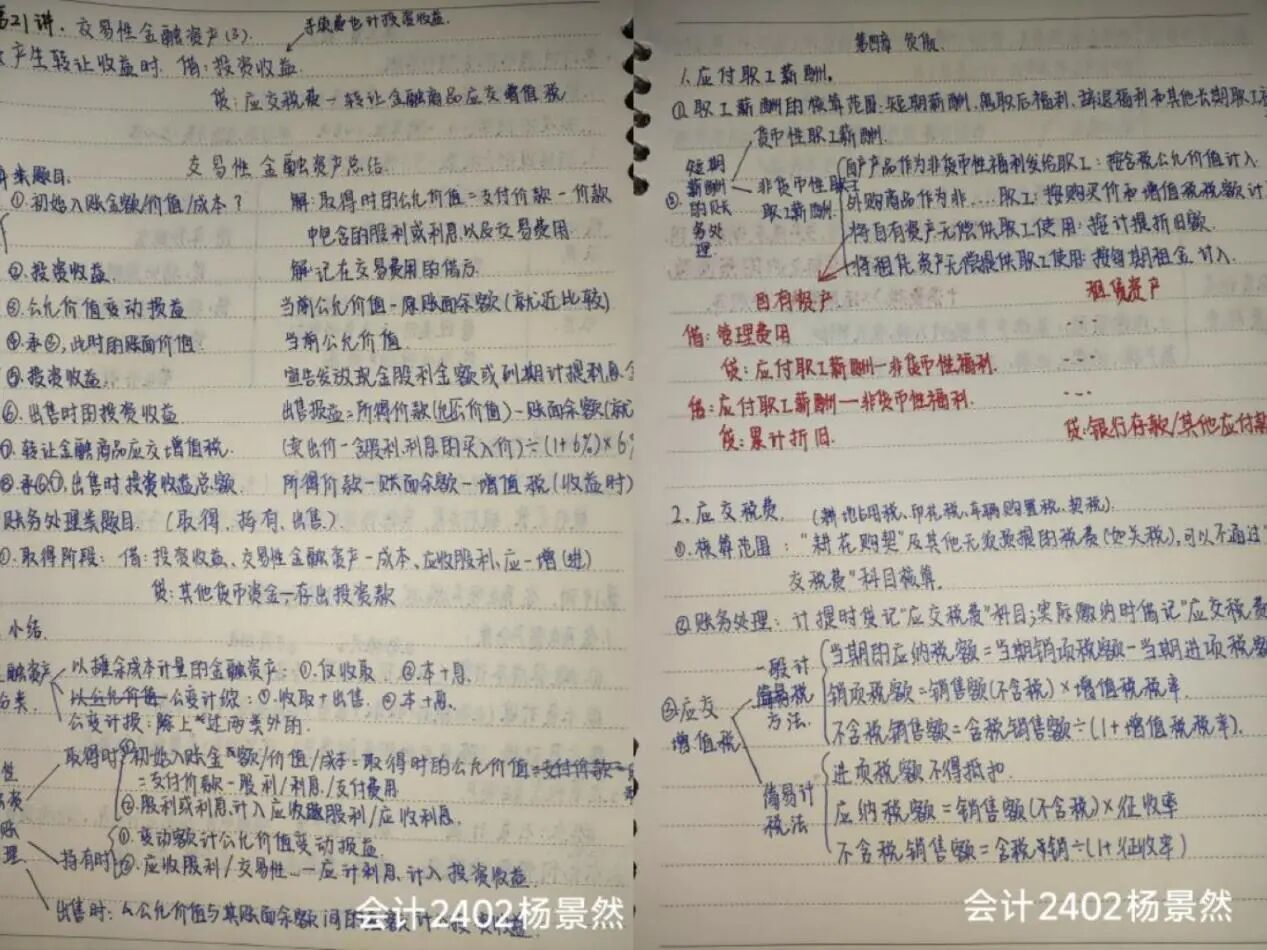 第21讲.交易性金融资产(3).
手续费也计投资收益.
产生转让收益时. 借:投资收益.
贷:应交税费—转让金融商品应交增值税
交易性金融资产总结.
算类题目.
①.初始入账金额/价值/成本? 解:取得时的公允价值=支付价款-价款
中包含的股利或利息以及交易费用
②.投资收益. 解:记在交易费用的借方.
③.公允价值变动损益 当前公允价值-原账面余额(就近比较)
④.承③,此时的账面价值. 当前公允价值.
⑤.投资收益. 宣告发放现金股利金额或到期计提利息.
⑥.出售时的投资收益 出售损益=所得价款(公允价值)-账面余额(就
⑦.转让金融商品应交增值税. (卖出价-含股利.利息的买入价)÷(1+6%)×6%
⑧.承⑥⑦,出售时投资收益总额. 所得价款-账面余额-增值税(收益时)
账务处理类题目. (取得、持有、出售)
①.取得阶段: 借:投资收益、交易性金融资产-成本、应收股利、应-增(进)
贷:其他货币资金—存出投资款
小结.
融资产 以摊余成本计量的金融资产: ①.仅收取 ②.本+息.
类. 以公允价值 公变计综:①.收取+出售 ②.本+息.
公变计损:除上述两类外的.
取得时 ①初始入账金额/价值/成本=取得时的公允价值=支付价款-
=支付价款-股利/利息/支付费用
②.股利或利息计入应收股利/应收利息.
①.变动额计公允价值变动损益.
持有时 ②.应收股利/交易性…—应计利息.计入投资收益.
出售时:公允价值与其账面余额间的差额计入投资收益.
会计2402杨景然
第四章 负债.
1.应付职工薪酬.
①.职工薪酬的核算范围:短期薪酬、离职后福利、辞退福利和其他长期职工福
②.短期薪酬的账务处理
货币性职工薪酬.
非货币性职工薪酬.
自产产品作为非货币性福利发给职工:按含税公允价值计入.
外购商品作为非....职工:按购买价和增值税税额计
将自有资产无偿供职工使用:按计提折旧额.
将租赁资产无偿提供职工使用:按每期租金计入.
自有资产 租赁资产
借:管理费用
贷:应付职工薪酬—非货币性福利.
借:应付职工薪酬—非货币性福利. ...
贷:累计折旧. 贷:银行存款/其他应付款
2.应交税费. (耕地占用税、印花税、车辆购置税、契税)
①.核算范围:"耕花购契"及其他无须预提的税费(如关税),可以不通过"
交税费"科目核算.
②账务处理: 计提时贷记"应交税费"科目;实际缴纳时借记"应交税费
③应交增值税.
一般计税方法.
当期的应纳税额=当期销项税额-当期进项税额
销项税额=销售额(不含税)×增值税税率.
不含税销售额=含税销售额÷(1+增值税税率).
简易计税法
进项税额不得抵扣.
应纳税额=销售额(不含税)×征收率
不含税销售额=含税销÷(1+征收率)
会计2402杨景然